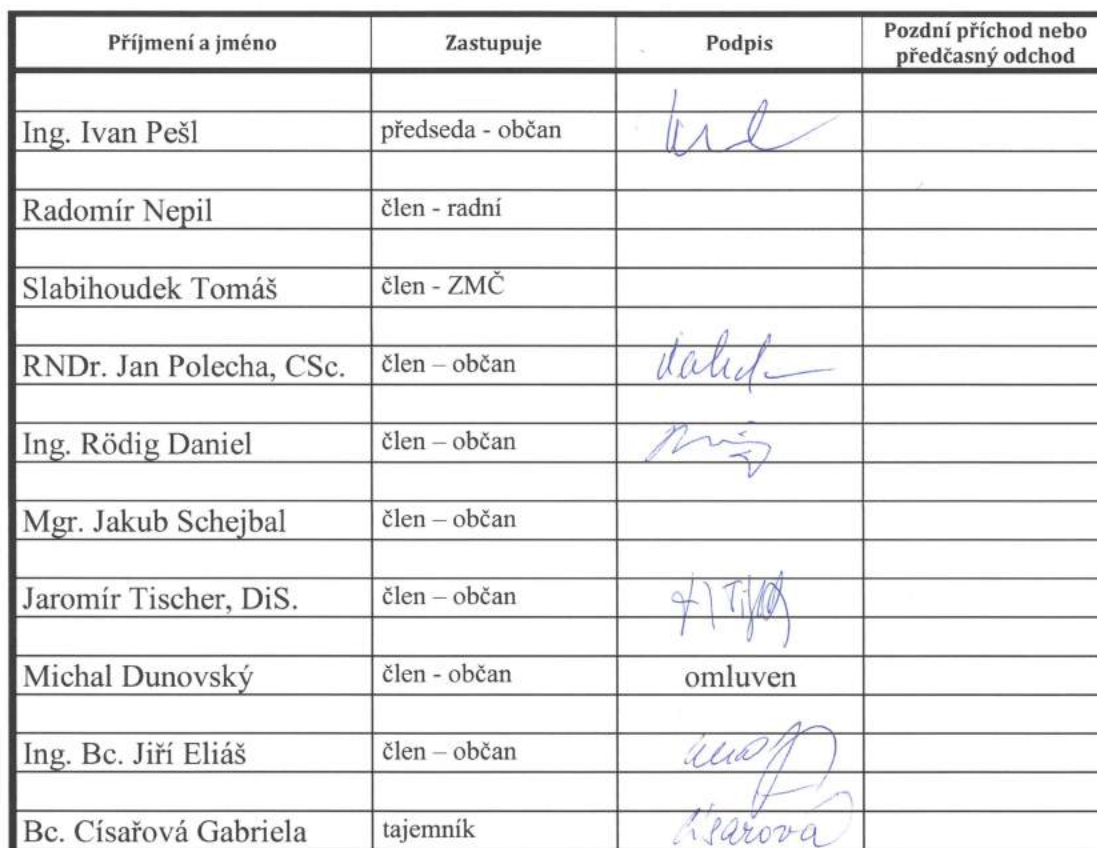 Příjmení a jméno Zastupuje Podpis Pozdní příchod nebo předčasný odchod
Ing. Ivan Pešl předseda - občan
Radomír Nepil člen - radní
Slabihoudek Tomáš člen - ZMČ
RNDr. Jan Polecha, CSc. člen – občan
Ing. Rödig Daniel člen – občan
Mgr. Jakub Schejbal člen – občan
Jaromír Tischer, DiS. člen – občan
Michal Dunovský člen - občan omluven
Ing. Bc. Jiří Eliáš člen – občan
Bc. Císařová Gabriela tajemník Císařová